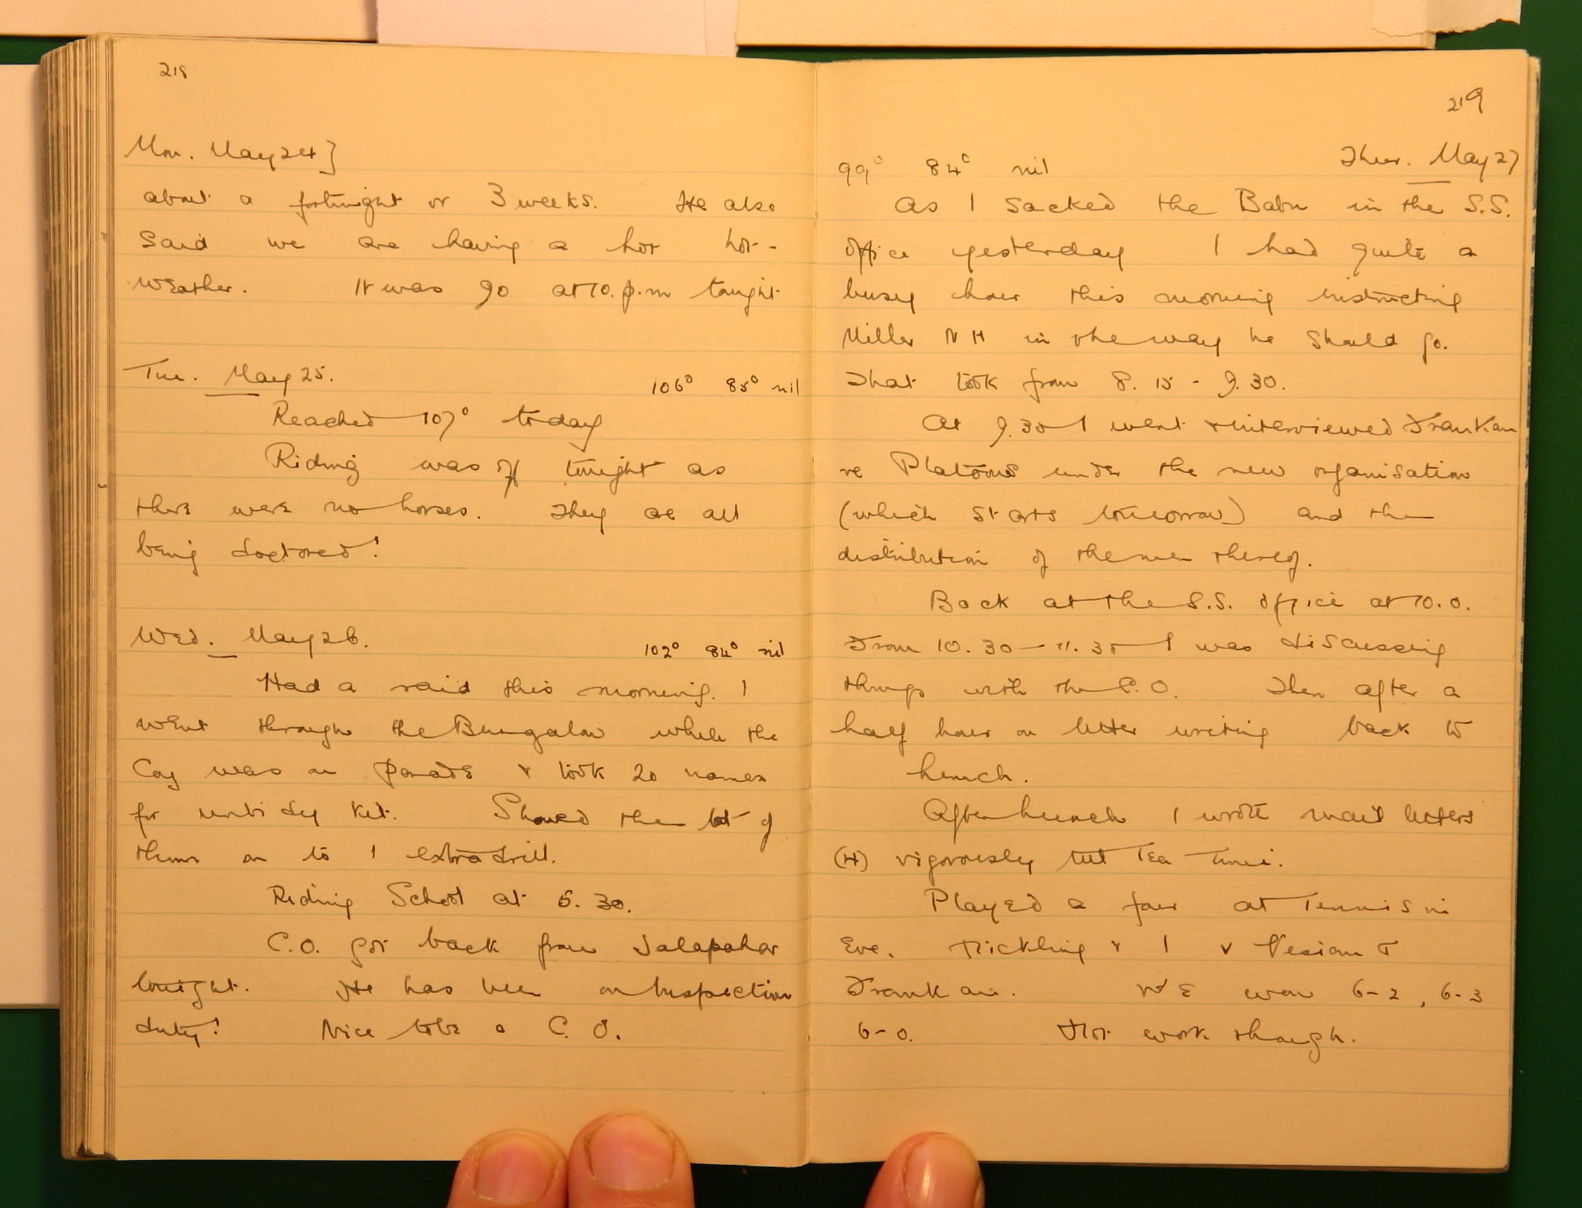 218
Mon. May 24]
about a fortnight or 3 weeks. He also
said we are having a hot hot-
weather. It was 90 at 10.p.m tonight
Tue. May 25. 106° 85° nil
Reached 107° today
Riding was off tonight as
there were no horses. They are all
being doctored!
Wed. May 26. 102° 84° nil
Had a raid this morning. I
went through the Bungalow while the
Coy was on parade & took 20 names
for untidy kit. Shoved the lot of
them on to 1 extra drill.
Riding School at 6.30.
C.O. got back from Jalapahar
tonight. He has been on Inspection
duty! Nice to be a C.O.
219
99° 84° nil Thur. May 27
As I sacked the Babu in the S.S.
office yesterday I had quite a
busy hour this morning instructing
Miller NH in the way he should go.
That took from 8.15 - 9.30.
At 9.30 I went & interviewed Frankau
re Platoons under the new organisation
(which starts tomorrow) and the
distribution of the men thereof.
Back at the S.S. office at 10.0.
From 10.30 - 11.30 I was discussing
things with the C.O. Then after a
half hour on letter writing back to
lunch.
After lunch I wrote mail letters
(H) vigorously till Tea Time.
Played a four at Tennis in
Eve. Hickling & I v Vesian &
Frankau. We won 6-2, 6-3
6-0. Hot work though.